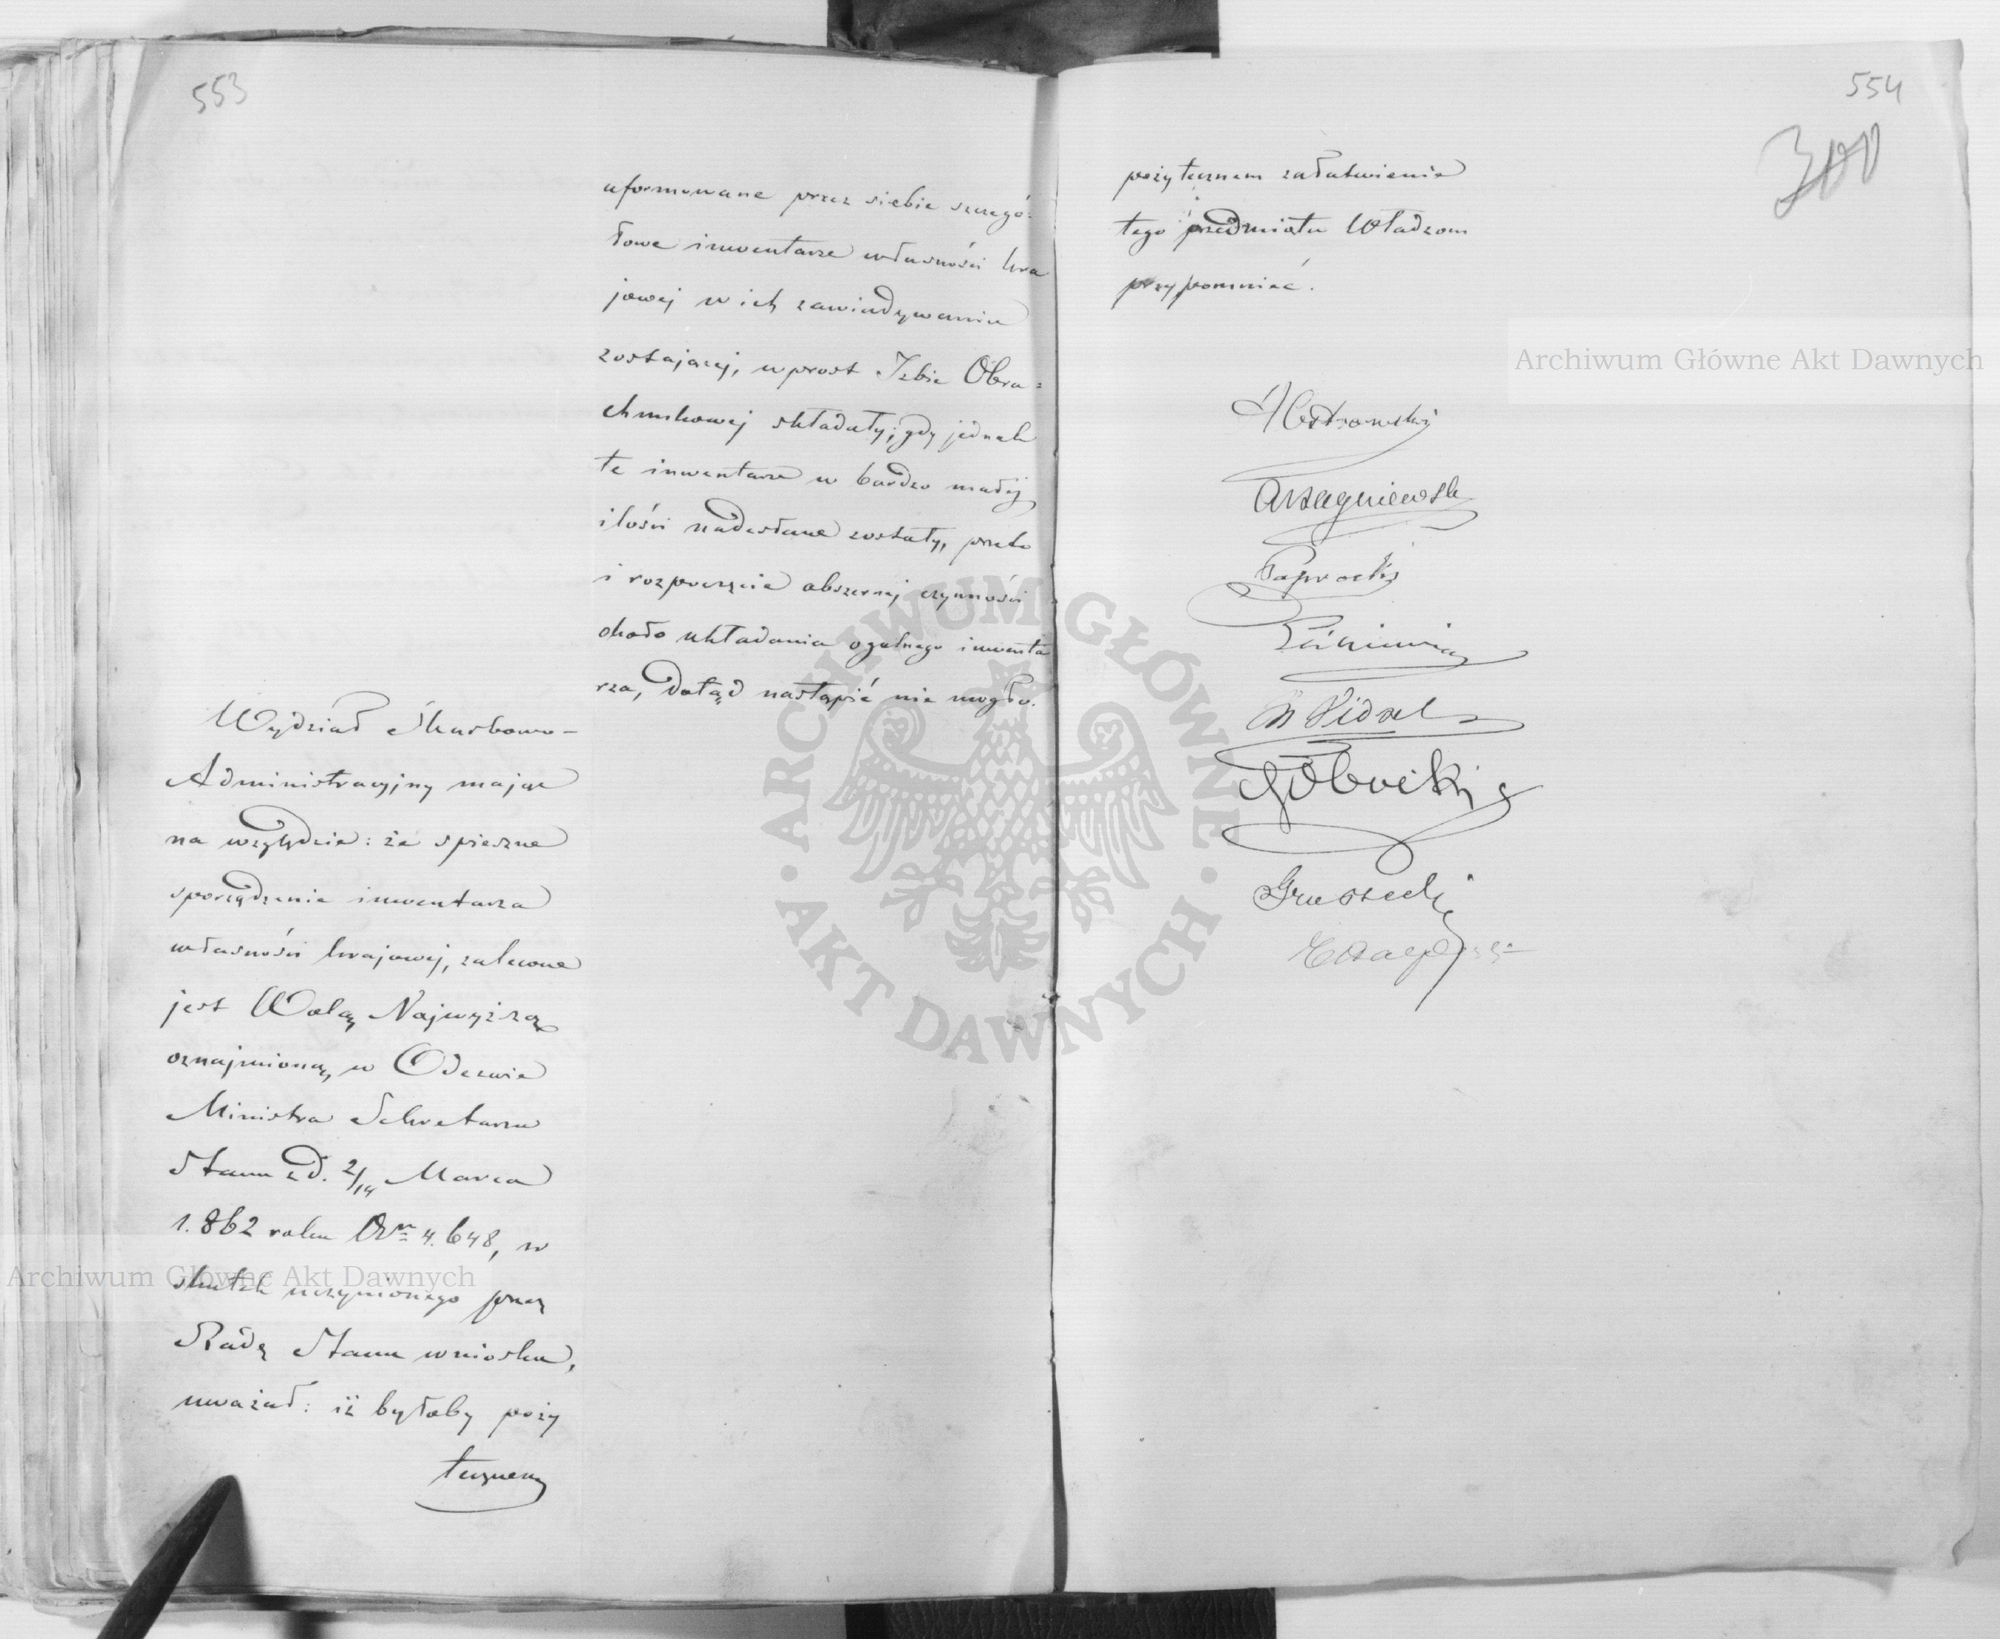 553
uformowane przez siebie szczegó-
łowe inwentarze własności kra
jowej w ich zawiadywaniu
zostającej, wprost Izbie Obra=
chunkowej składały; gdy jednak
te inwentarze w bardzo małej
ilości nadesłane zostały, przeto
i rozpoczęcie obszernej czynności
około układania ogólnego inwenta
rza, dotąd nastąpić nie mogło.
Wydział Skarbowo-
Administracyjny mając
na względzie: że spieszne
sporządzenie inwentarza
własności krajowej, zalecone
jest Wolą Najwyższą
oznajmioną, w Odezwie
Ministra Sekretarza
Stanu z d. 2/14 Marca
1.862 roku Nr 4.648, w
skutek uczynionego przez
Radę Stanu wniosku,
uważał: iż byłoby poży
tecznem
554
300
pożytecznem załatwienie
tego przedmiotu Władzom
przypomnieć.
Ostrowski
Paprocki
Gruszecki
Archiwum Główne Akt Dawnych
Archiwum Główne Akt Dawnych
ARCHIWUM GŁÓWNE · AKT DAWNYCH ·